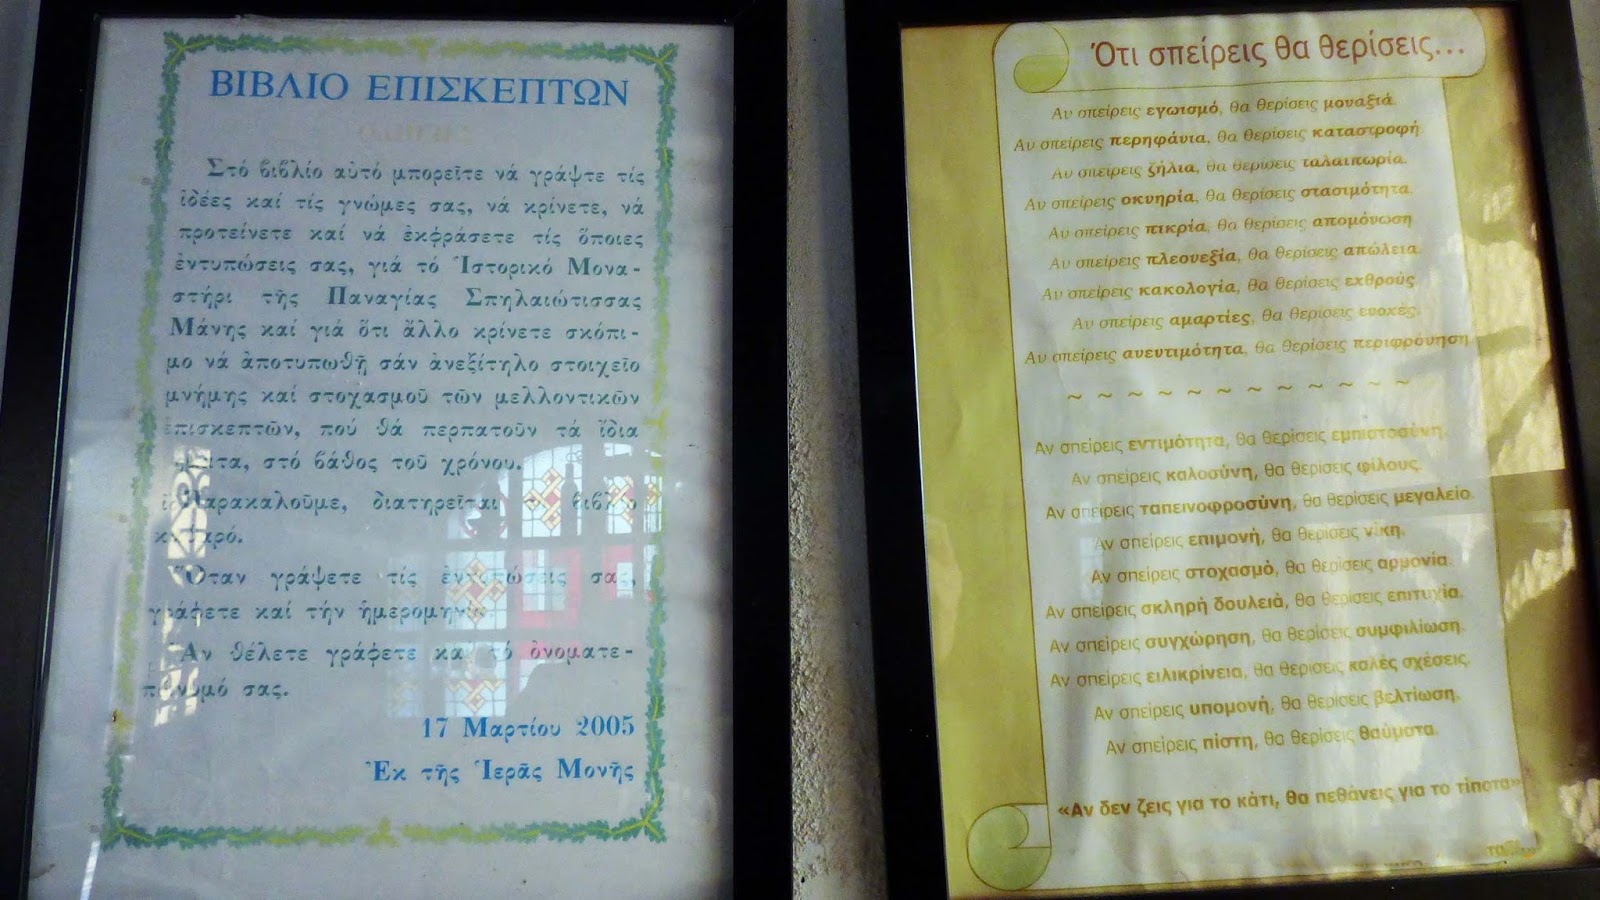 ΒΙΒΛΙΟ ΕΠΙΣΚΕΠΤΩΝ
Στό βιβλίο αὐτό μπορεῖτε νά γράψτε τίς
ἰδέες καί τίς γνῶμες σας, νά κρίνετε, νά
προτείνετε καί νά ἐκφράσετε τίς ὅποιες
ἐντυπώσεις σας, γιά τό Ἱστορικό Μονα-
στήρι τῆς Παναγίας Σπηλαιώτισσας
Μάνης καί γιά ὅτι ἄλλο κρίνετε σκόπι-
μο νά ἀποτυπωθῇ σάν ἀνεξίτηλο στοιχεῖο
μνήμης καί στοχασμοῦ τῶν μελλοντικῶν
ἐπισκεπτῶν, πού θά περπατοῦν τά ἴδια
στό βάθος τοῦ χρόνου.
Παρακαλοῦμε, διατηρεῖται βιβλίο
Ὅταν γράψετε τίς ἐντυπώσεις σας,
γράφετε καί τήν ἡμερομηνία
Ἄν θέλετε γράφετε καί τό ὀνοματε-
πώνυμό σας.
17 Μαρτίου 2005
Ἐκ τῆς Ἱερᾶς Μονῆς
Ότι σπείρεις θα θερίσεις...
Αν σπείρεις εγωισμό, θα θερίσεις μοναξιά.
Αν σπείρεις περηφάνια, θα θερίσεις καταστροφή.
Αν σπείρεις ζήλια, θα θερίσεις ταλαιπωρία.
Αν σπείρεις οκνηρία, θα θερίσεις στασιμότητα.
Αν σπείρεις πικρία, θα θερίσεις απομόνωση
Αν σπείρεις πλεονεξία, θα θερίσεις απώλεια.
Αν σπείρεις κακολογία, θα θερίσεις εχθρούς.
Αν σπείρεις αμαρτίες, θα θερίσεις ενοχές.
Αν σπείρεις ανεντιμότητα, θα θερίσεις περιφρόνηση
~ ~ ~ ~ ~ ~ ~ ~ ~ ~ ~ ~
Αν σπείρεις εντιμότητα, θα θερίσεις εμπιστοσύνη.
Αν σπείρεις καλοσύνη, θα θερίσεις φίλους.
Αν σπείρεις ταπεινοφροσύνη, θα θερίσεις μεγαλείο.
Αν σπείρεις επιμονή, θα θερίσεις νίκη.
Αν σπείρεις στοχασμό, θα θερίσεις αρμονία.
Αν σπείρεις σκληρή δουλειά, θα θερίσεις επιτυχία.
Αν σπείρεις συγχώρηση, θα θερίσεις συμφιλίωση.
Αν σπείρεις ειλικρίνεια, θα θερίσεις καλές σχέσεις.
Αν σπείρεις υπομονή, θα θερίσεις βελτίωση.
Αν σπείρεις πίστη, θα θερίσεις θαύματα.
«Αν δεν ζεις για το κάτι, θα πεθάνεις για το τίποτα»